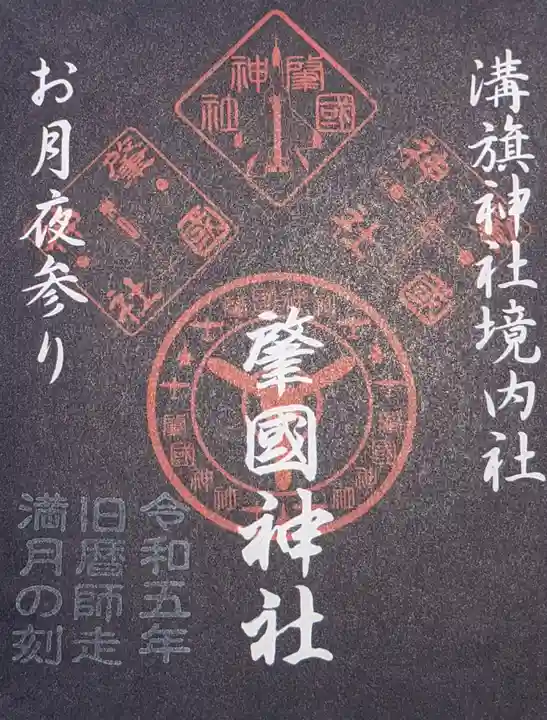 溝旗神社境内社
肇國神社
お月夜参り
令和五年
旧暦師走
満月の刻
肇國
神社